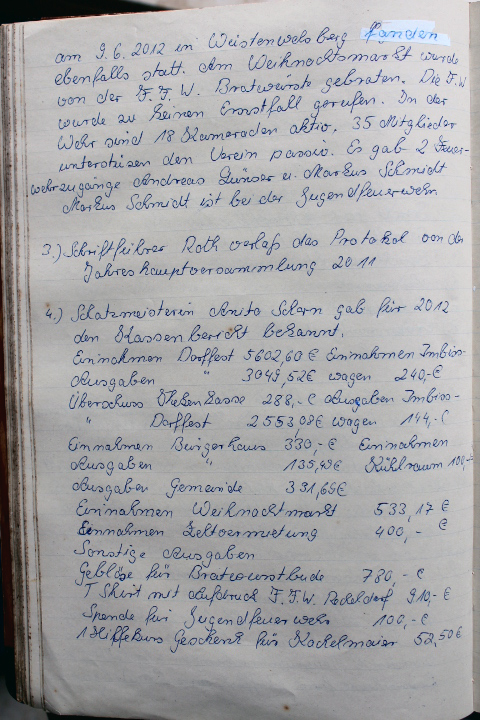 am 9.6.2012 in Wüstenwelsberg fanden
ebenfalls statt. Am Weihnachtsmarkt wurde
von der F.F.W. Bratwürste gebraten. Die F.W
wurde zu keinen Ernstfall gerufen. In der
Wehr sind 18 Kameraden aktiv, 35 Mitglieder
unterstüzen den Verein passiv. Es gab 2 Feuer-
wehrzugänge Andreas u. Markus Schmidt
Markus Schmidt ist bei der Jugendfeuerwehr
3.) Schriftführer Roth verlaß das Protokol von der
Jahreshauptversammlung 2011
4.) Schatzmeisterin Anita Schorn gab für 2012
den Kassenbericht bekannt.
Einnahmen Dorffest 5602,60 € Einnahmen Imbiss-
Ausgaben " 3049,52€ wagen 240,-€
Überschuss 288,-€ Ausgaben Imbiss-
" Dorffest 2553,08€ wagen 144,-€
Einnahmen Bürgerhaus 330,-€ Einnahmen
Ausgaben " 135,49€ Kühlraum 100,-
Ausgaben Gemeinde 331,65€
Einnahmen Weihnachtmarkt 533,17 €
Einnahmen Zeltvermietung 400,- €
Sonstige Ausgaben
Gebläse für Bratwurstbude 780,- €
T Shirt mit Aufdruck F.F.W. 910,- €
Spende für Jugendfeuerwehr 100,- €
Geschenk für Kochelmaier 52,50€